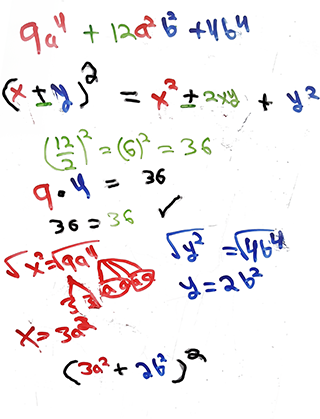 9a⁴ + 12a²b² + 4b⁴
(x ± y)² = x² ± 2xy + y²
(12/2)² = (6)² = 36
9 · 4 = 36
36 = 36 ✓
√x² = √9a⁴
3 3
√y² = √4b⁴
x = 3a²
y = 2b²
(3a² + 2b²)²